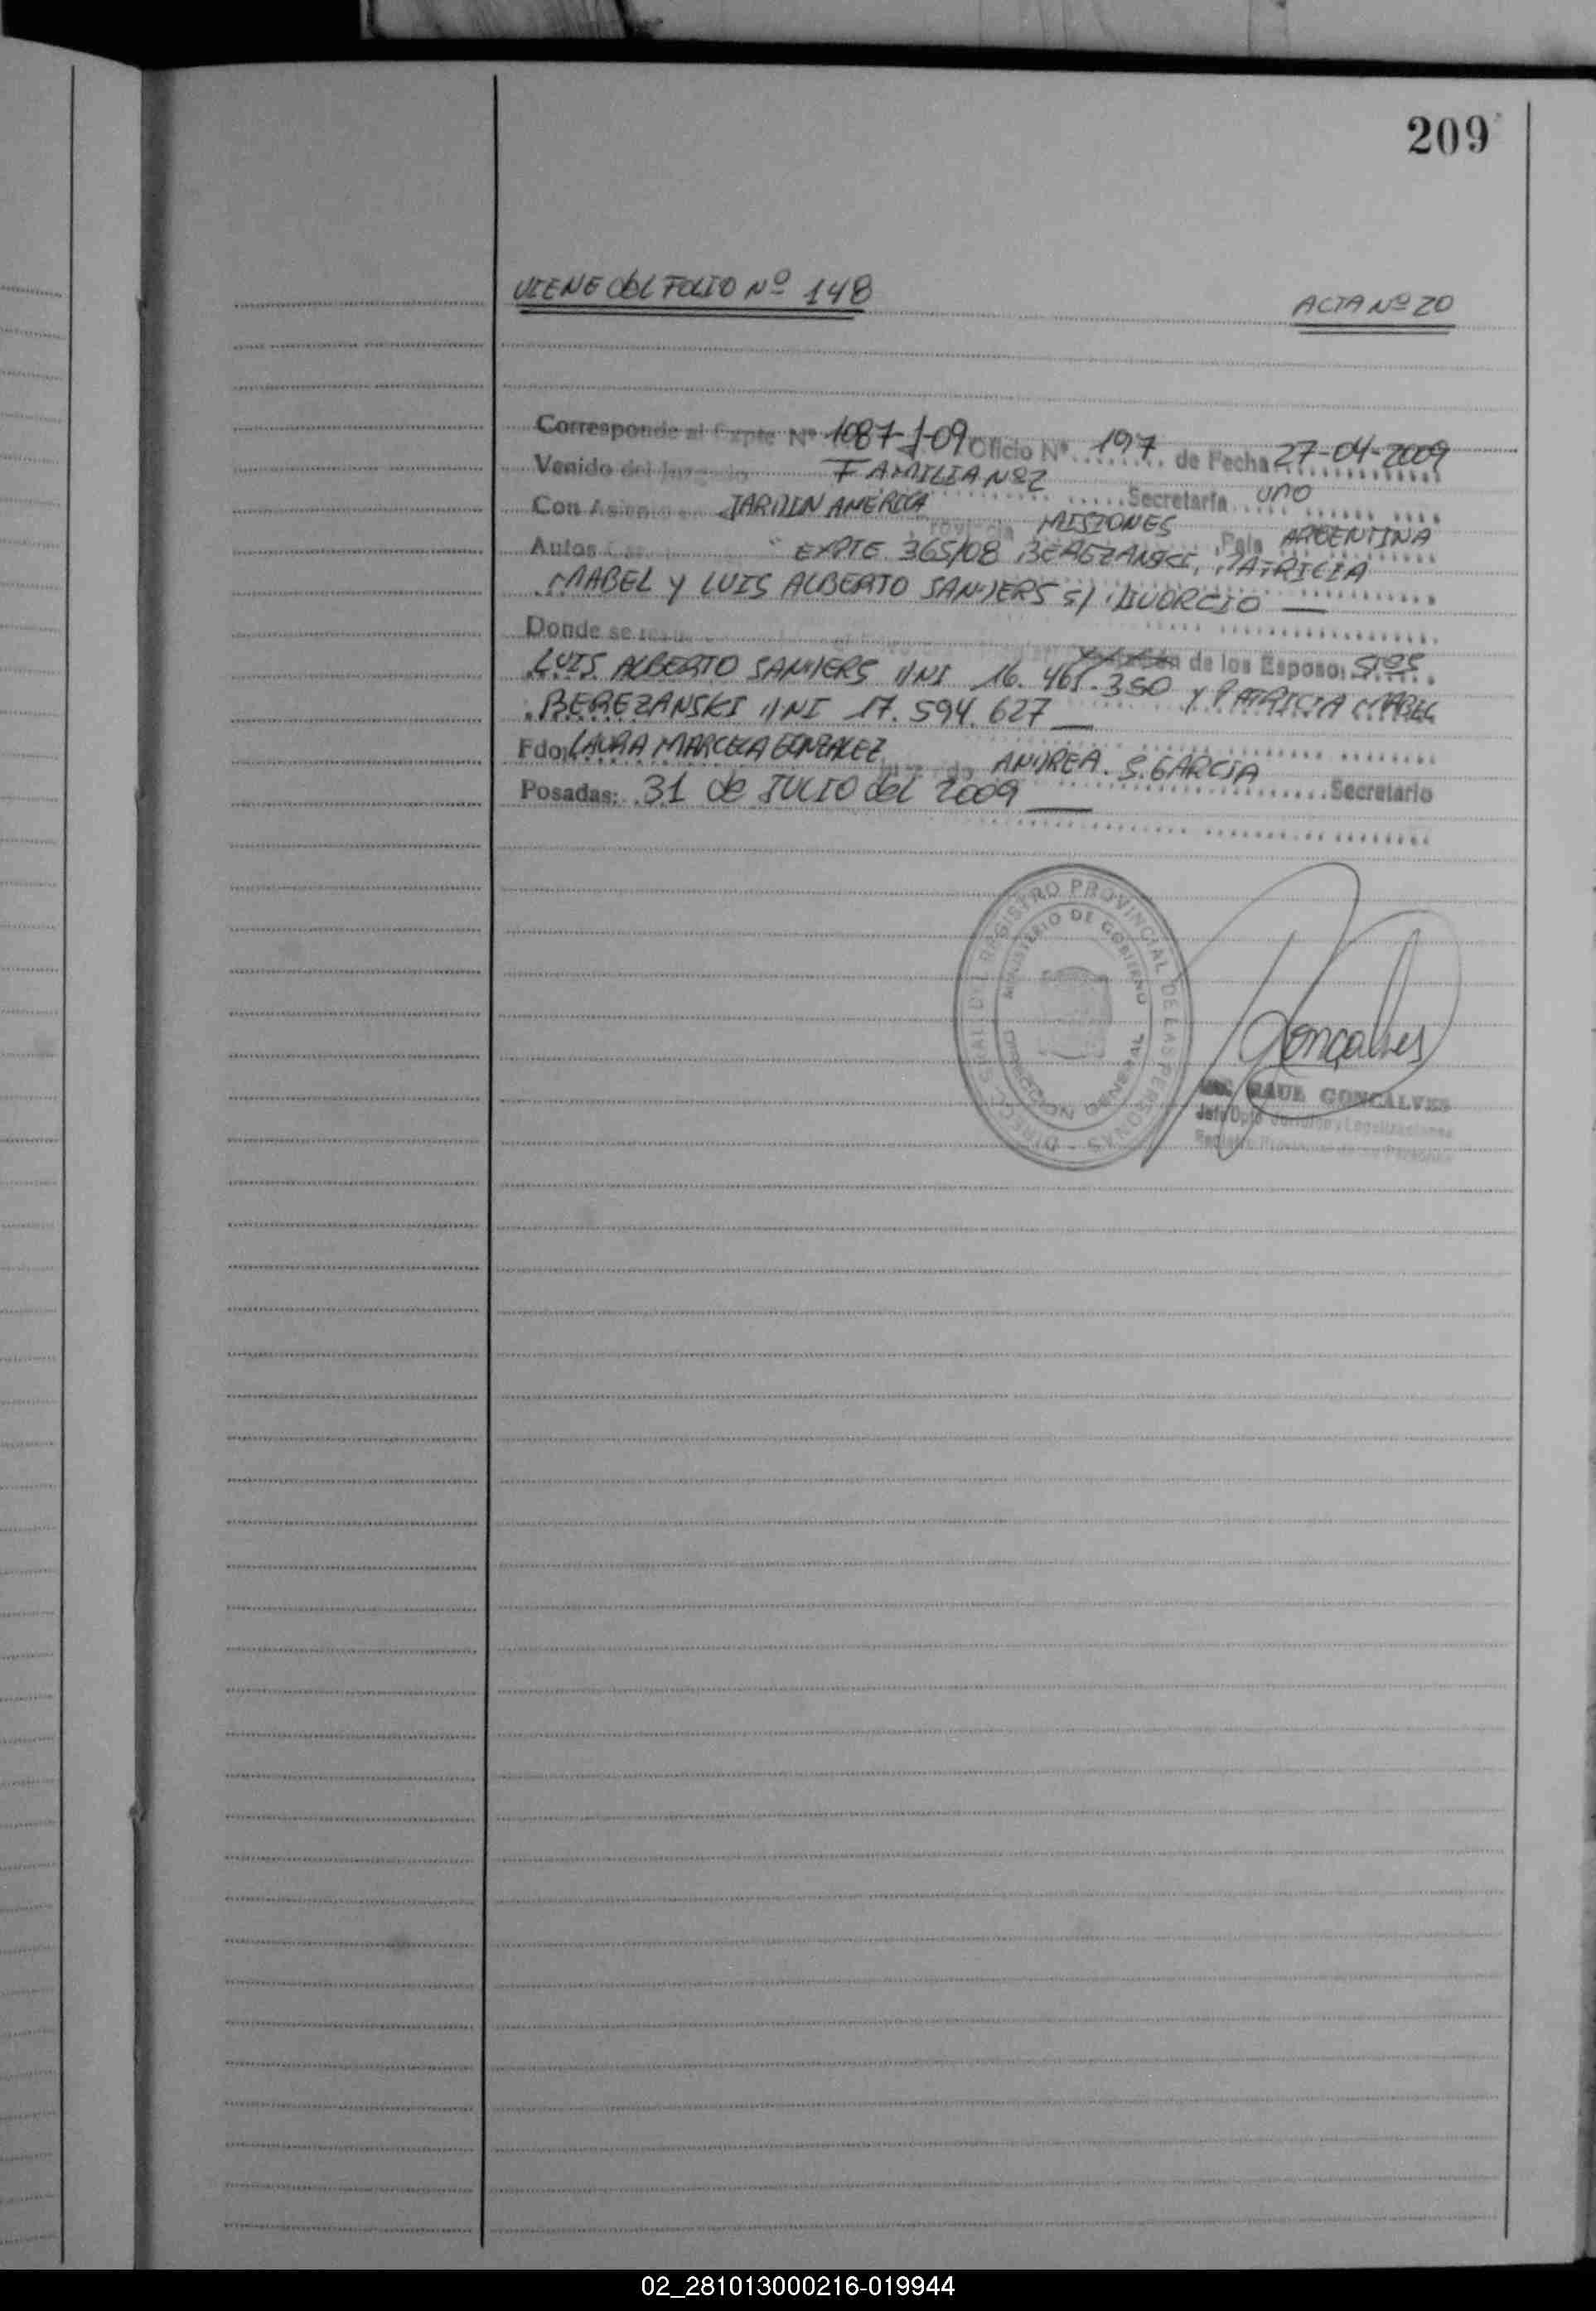 209
VIENE del FOLIO Nº 148
ACTA Nº 20
Corresponde al Expte Nº 1087-J-09 Oficio Nº 197 de Fecha 27-04-2009
Venido del Juzgado FAMILIA Nº 2 Secretaría UNO
Con Asien JARDIN AMERICA Provincia MISIONES País ARGENTINA
Autos EXPTE 365/08 BEREZANSKI, PATRICIA
MABEL Y LUIS ALBERTO SANDERS S/ DIVORCIO
Donde se de los Esposo: SRES
LUIS ALBERTO SANDERS DNI 16.461.350 Y PATRICIA MABEL
BEREZANSKI DNI 17.594.627
Fdo: LAURA MARCELA GONZALEZ ANDREA. S. GARCIA Secretario
Posadas: 31 de JULIO del 2009
DIREC. GRAL DEL REGISTRO PROVINCIAL DE LAS PERSONAS
MINISTERIO DE GOBIERNO
DIRECCION GENERAL
Gonçalves
RAUL GONCALVES
Jefe Dpto Jurídico y Legalizaciones
Registro Provincial de las Personas
02_281013000216-019944